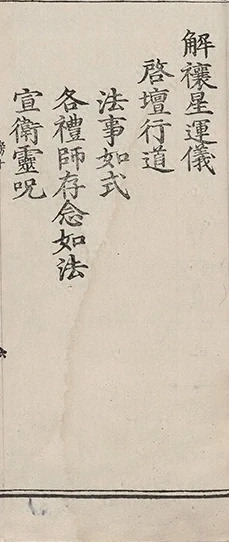 解禳星運儀
啓壇行道
法事如式
各禮師存念如法
宣衛靈呪